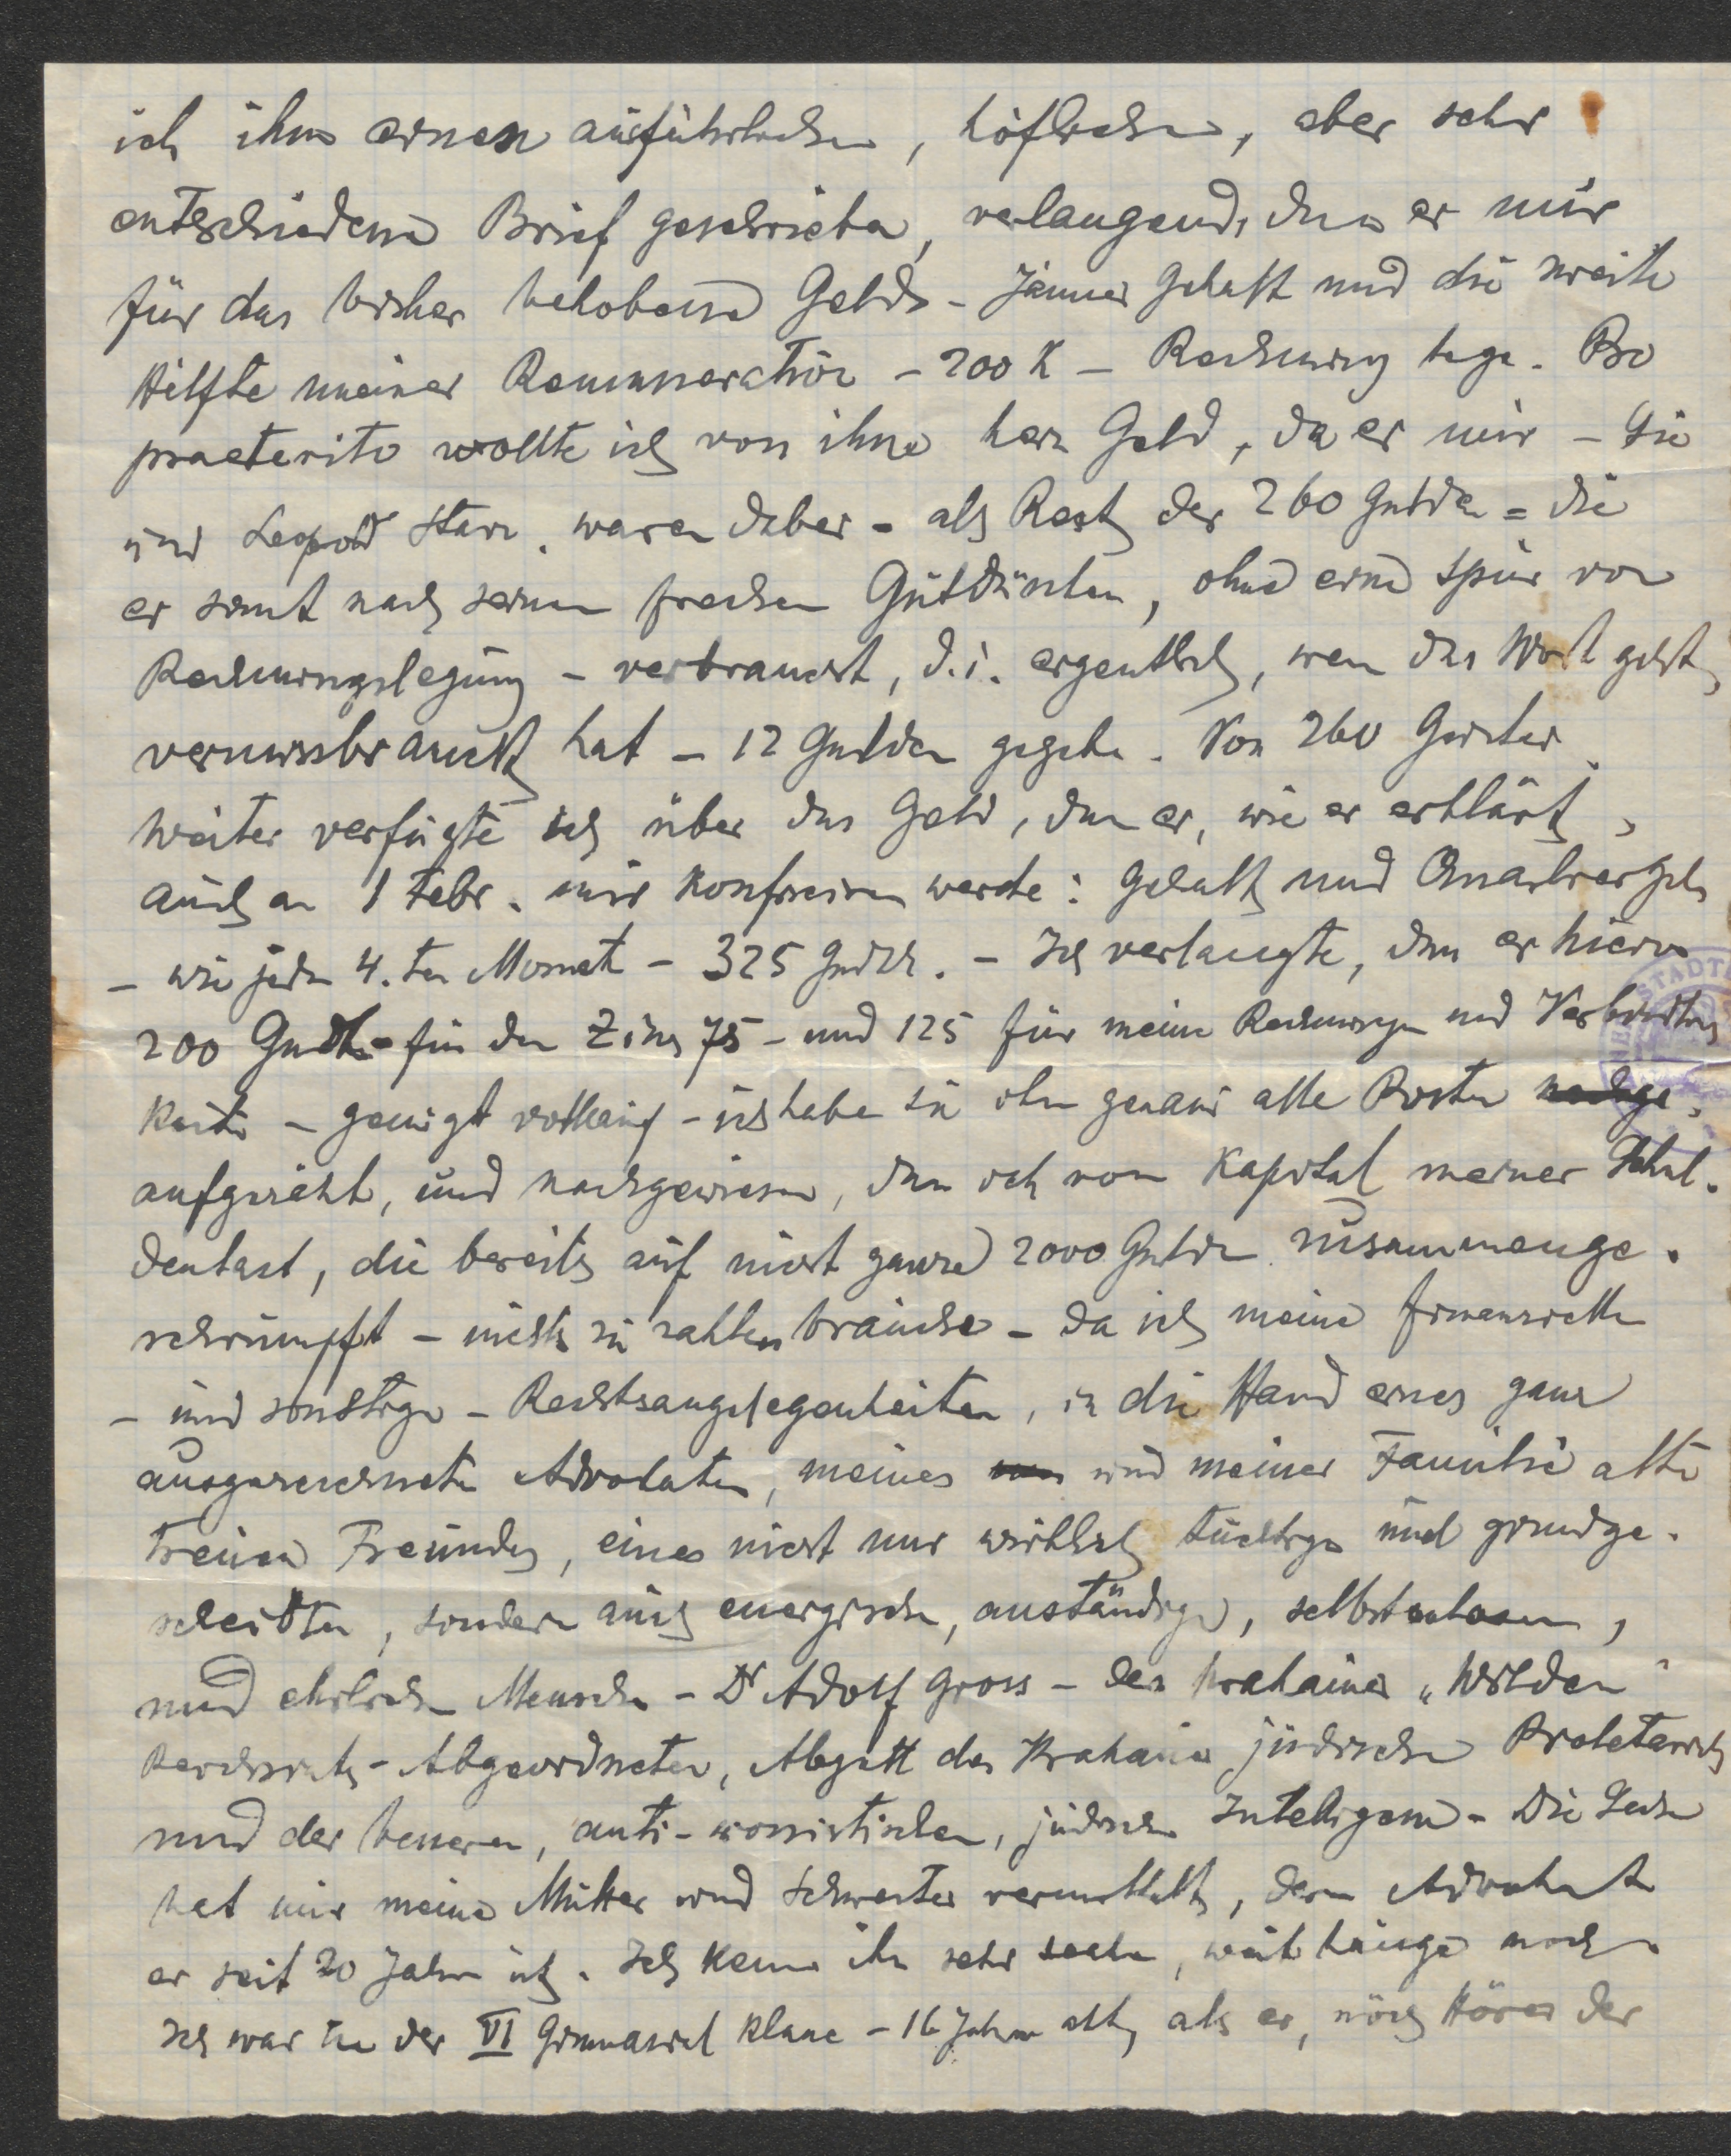 ich ihm einen ausführlichen, höflichen, aber sehr
entschiedenen Brief geschrieben, verlangend, dass er mir
für das bisher behobene Geld – Jänner Gehalt und die zweite
Hälfte meiner Remuneration – 200 K – Rechnung lege. Pro
praeterito wollte ich von ihm kein Geld, da er mir – Sie
und Leopold Starr. waren dabei – als Rest der 260 Gulden = die
er somit nach seinem frechen Gutdünken, ohne eine Spur von
Rechnungslegung – verbraucht, d. i. eigentlich, wenn das Wort gibt,
vermissbraucht hat – 12 Gulden gegeben. Von 260
Weiter verfügte ich über das Geld, das er, wie er erklärt,
auch am 1 Febr. mir konfisciren werde: Gehalt und Quartiergeld
– wie jeden 4.ten Monat – 325 Gulden. – Ich verlangte, dass er hievon
200 Gulden – für den Zins 75 – und 125 für meine Rechnungen und Verbindlich
keiten – genügt vorläufig – ich habe sie ihm genau alle Posten nachge.
aufgezählt, und nachgewiesen, dass ich vom Kapital meiner Schul-
denlast, die bereits auf nicht ganze 2000 Gulden zusammenge-
schrumpft – nichts zu zahlen brauche – da ich meine finanziellen
– und sonstigen – Rechtsangelegenheiten, in die Hand eines ganz
ausgezeichneten Advokaten, meines und meiner Familie alten
treuen Freundes, eines nicht nur wirklich tüchtigen und grundge-
scheidten, sondern auch energischen, anständigen, selbstlosen,
und ehrlichen Menschen – Dr Adolf Gross – den Krakauer „Wilden“
Reichsrats-Abgeordneten, Abgott des Krakauer jüdischen Proletariats
und der besseren, anti-zionistischen, jüdischen Intelligenz – Die Sache
hat mir meine Mutter und Schwester vermittelt, deren Advokat
er seit 20 Jahren ist. Ich kenne ihn sehr lange noch.
Ich war in der VI Gimnasial Klasse – 16 Jahre alt, als er, noch Hörer der